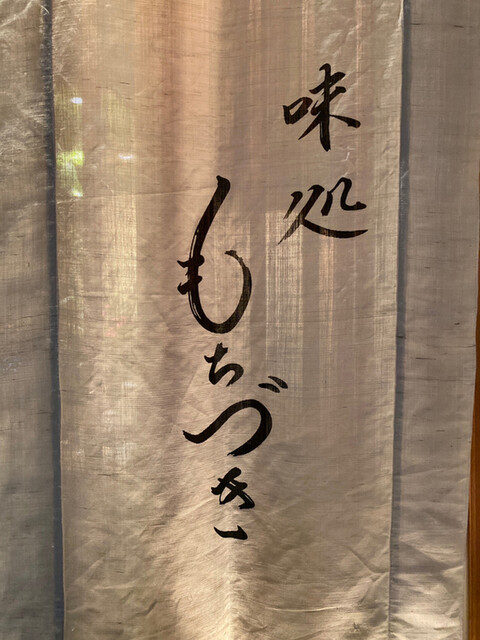 味処
もちづき